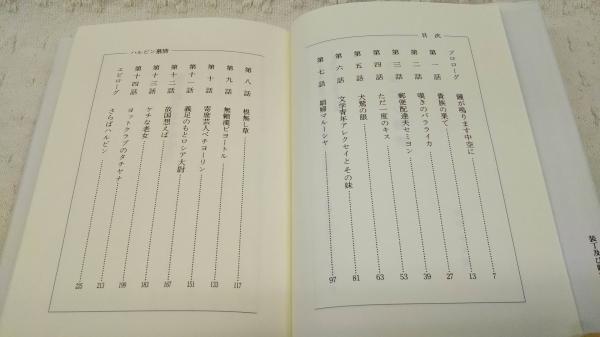 目次
プロローグ 鐘が鳴ります中空に 7
第一話 貴族の果て 13
第二話 嘆きのバラライカ 27
第三話 郵便配達夫セミヨン 39
第四話 ただ一度のキス 53
第五話 犬鷲の眼 63
第六話 文学青年アレクセイとその妹 81
第七話 娼婦マルーシャ 97
ハルビン慕情
第八話 根無し草 117
第九話 無頼漢ピョートル 133
第十話 寄席芸人ペチョーリン 151
第十一話 義足のもとロシア大尉 167
第十二話 故国想えば 183
第十三話 ケチな老女 199
第十四話 ヨットクラブのタチヤナ 213
エピローグ さらばハルビン 225
装丁及び